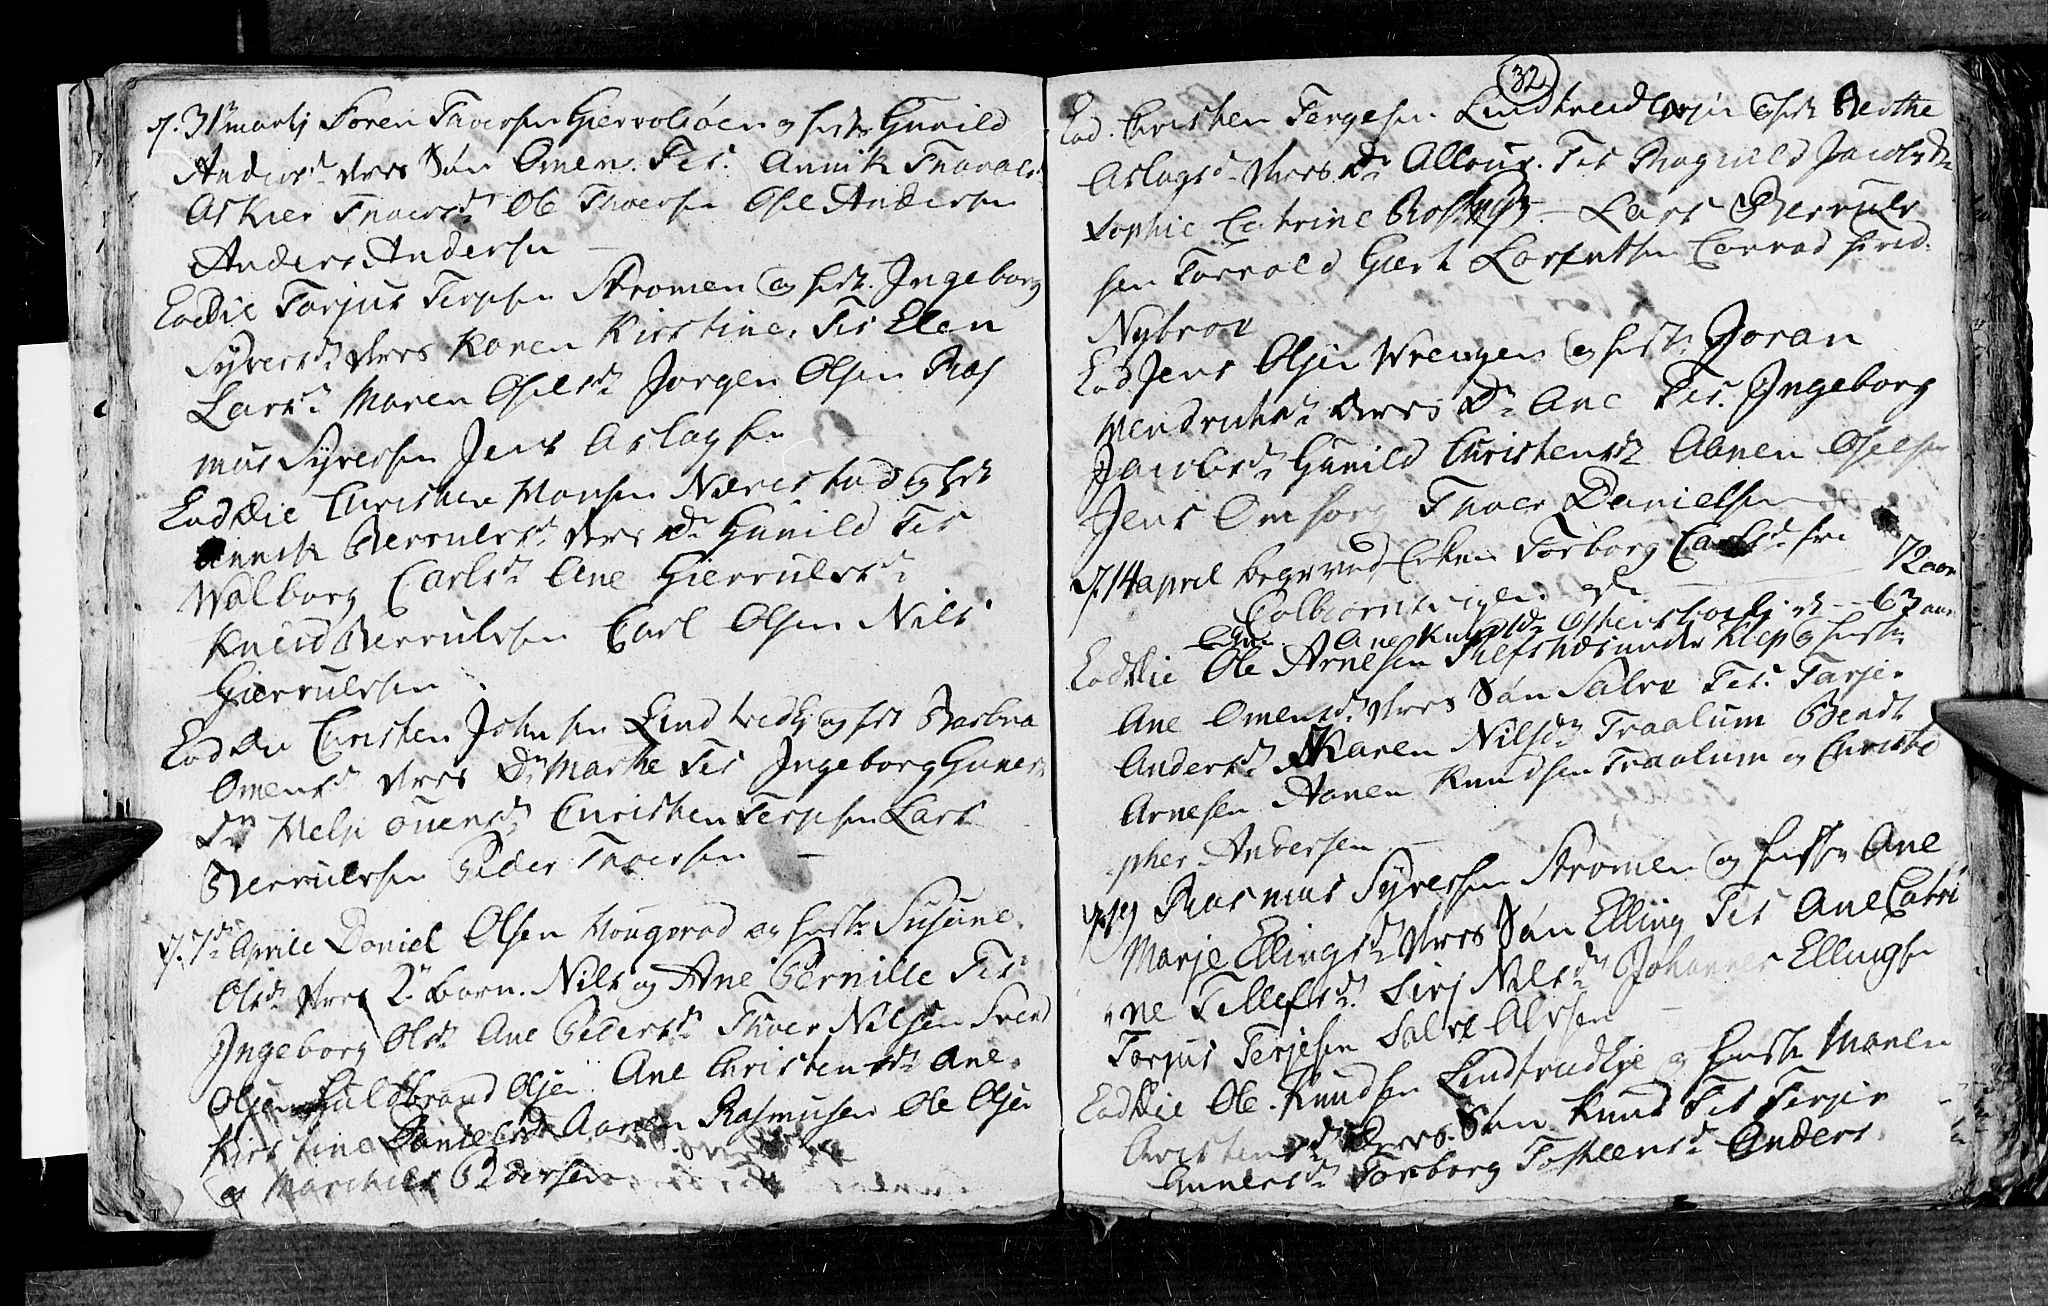 d. 31 martij Soren Thoersen Giervolsöen og hust. Gunild
Anders d. deres Søn Omen. Tes. Annik Thorals
Askier Thoers d. Ole Thoersen Osel Andersen
Anders Andersen
Eod Die Torjus Terjesen Stromen og hust. Ingeborg
Syvers d. deres Karen Kirstine. Tes Elen
Lars d. Maren Osels d. Jorgen Olsen Ras
mus Syversen Jens Aslagsen
Eod Die Christen Hansen Nærestad og hust
Annik Berruls d. deres D. Gunild Tes
Walborg Carls d. Ane Gierruls d.
Knud Berrulsen Carl Olsen Nils
Gierrulsen
Eod Die Christen Johnsen Lindtredt og hst Barbra
Omens d. deres D. Marthe Tes Ingeborg Guners
D. Helje Ouens d. Christen Terjesen Lars
Berrulsen Peder Thoersen
d. 7 Aprile Daniel Olsen Hougerød og hust. Susane
Ols d. deres 2 børn. Nils og Ane Pernille Tes
Ingeborg Ols d. Ane Peders d. Thoer Nilsen Svend
Olsen Huldbrand Olsen Ane Christens d. Ane
Kirstine Daniels d. Aanen Rasmusen Ole Olsen
og Marthes Pedersen
32
Eod. Christen Tergesen Lindtredt og hst Berthe
Aslags d. deres D. Allour. Tes Ragnild Jacobs D.
Sophie Catrine Lars Berrul
sen Torvald Giert Lorentsen Conrad Frid.
Nybroe
Eod Jens Olsen Wrengen og hust. Joran
Hendrichs d. deres D. Ane Tes. Ingeborg
Jacobs d. Gunild Christens d. Aanen Oselsen
Jens Omsorg Thoer Danielsen
d. 14 april begraved Enken Torborg Carls d. fra
Colbiornsvigen. 72 aar
Enken Ane Knuds d. 63 aar
Eod Die Ole Arnesen under Klep og hust
Ane Omens d. deres Søn Salve Tes. Tarje
Anders d. Karen Nils d. Traalum Bendt
Arnesen Aanen Knudsen Traalum og Christo
pher Andersen
d. 19 Rasmus Syversen Stromen og hust Ane
Marje Ellings d. deres Søn Elling Tes Ane Catri
ne Tellefs d. Sirj Nils d. Johannes Ellingsen
Torjus Terjesen Salve Alvsen
Eod Die Ole Knudsen Lindtredt og hust Maren
Christens d. deres Søn Knud Tes Terjer
Guners d. Torborg Tosteens d. Anders